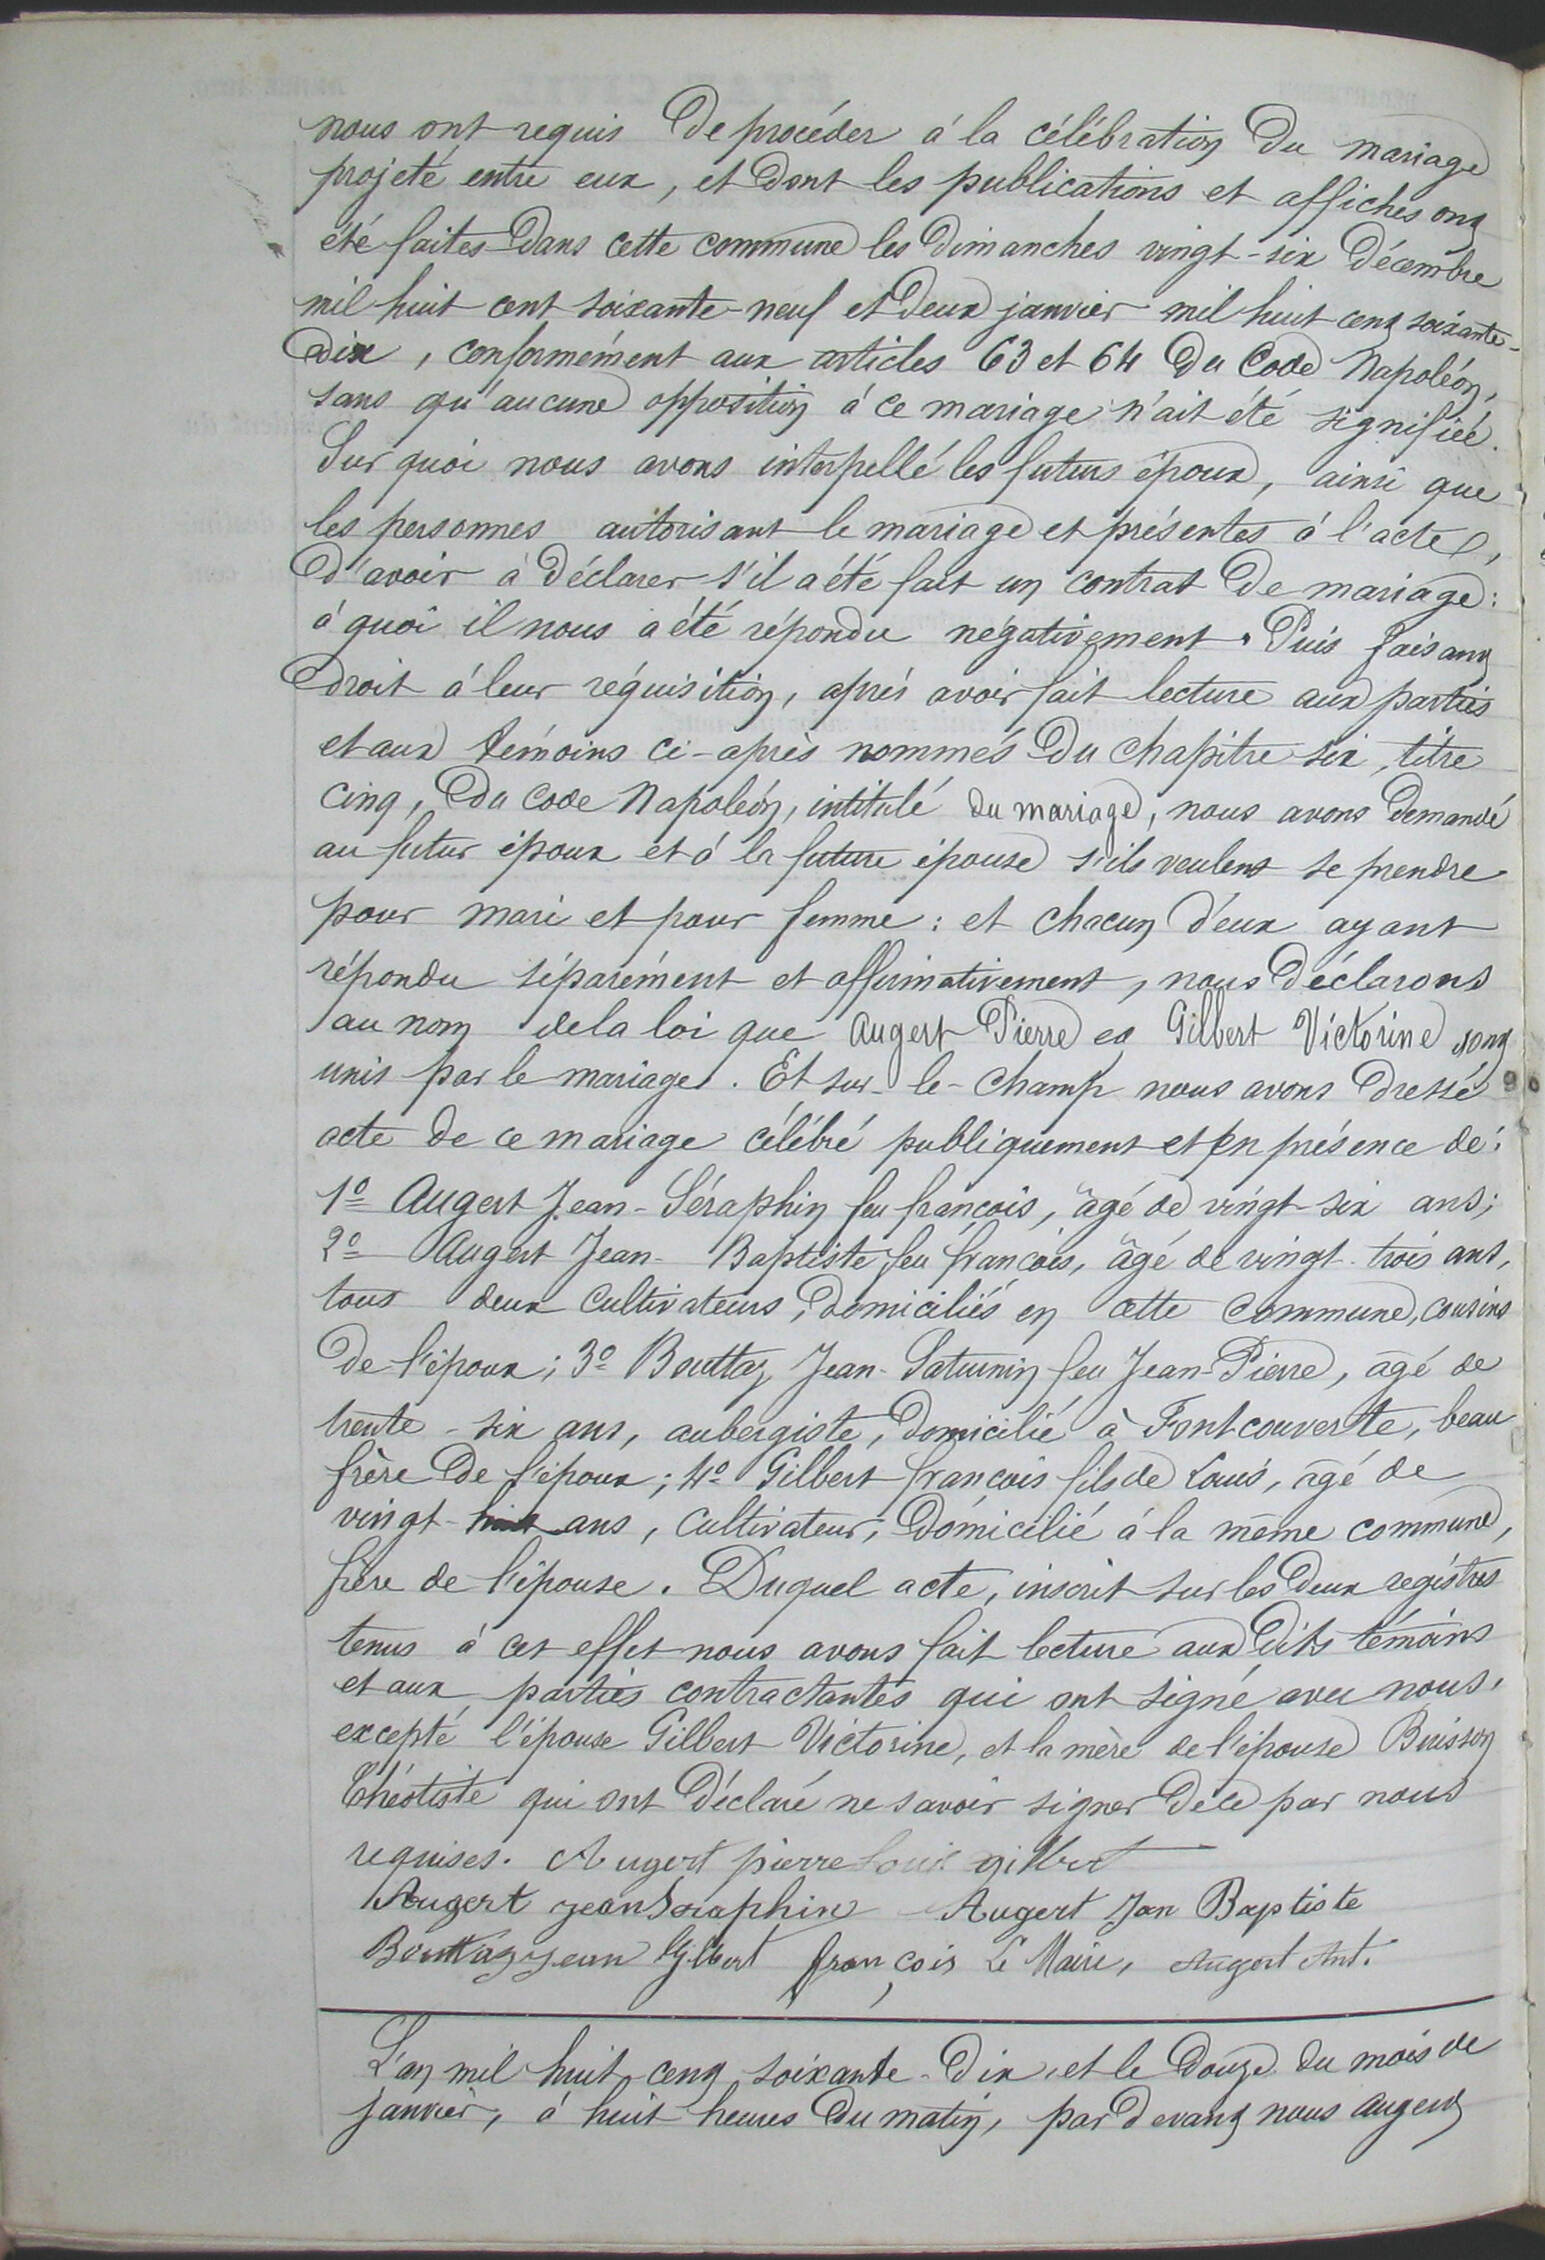 nous ont requis de procéder à la célébration du mariage
projeté entre eux, et dont les publications et affiches ont
été faites dans cette commune les dimanches vingt-six décembre
mil huit cent soixante-neuf et deux janvier mil huit cent soixante-
dix, conformément aux articles 63 et 64 du Code Napoléon,
sans qu'aucune opposition à ce mariage n'ait été signifiée.
Sur quoi nous avons interpellé les futurs époux, ainsi que
les personnes autorisant le mariage et présentes à l'acte,
d'avoir à déclarer s'il a été fait un contrat de mariage:
à quoi il nous a été répondu négativement. Puis faisant
droit à leur réquisition, après avoir fait lecture aux parties
et aux témoins ci-après nommés du chapitre six, titre
cinq, du Code Napoléon, intitulé du mariage, nous avons demandé
au futur époux et à la future épouse s'ils veulent se prendre
pour mari et pour femme: et chacun d'eux ayant
répondu séparément et affirmativement, nous déclarons
au nom de la loi que Augert Pierre et Gilbert Victorine sont
unis par le mariage. Et sur-le-champ nous avons dressé
acte de ce mariage célébré publiquement et en présence de:
1º Augert Jean-Séraphin feu françois, âgé de vingt-six ans;
2º Augert Jean-Baptiste feu françois, âgé de vingt-trois ans,
tous deux cultivateurs, domiciliés en cette commune, cousins
de l'époux; 3º Bouttaz Jean-Saturnin feu Jean-Pierre, âgé de
trente-six ans, aubergiste, domicilié à Fontcouverte, beau
frère de l'époux; 4º Gilbert françois fils de Louis, âgé de
vingt-huit ans, cultivateur, domicilié à la même commune,
frère de l'épouse. Duquel acte, inscrit sur les deux registres
tenus à cet effet nous avons fait lecture aux dits témoins
et aux parties contractantes qui ont signé avec nous,
excepté l'épouse Gilbert Victorine, et la mère de l'épouse Buisson
Théotiste qui ont déclaré ne savoir signer de ce par nous
requises. Augert pierre Louis gilbert
Augert jean Seraphin Augert Jan Baptiste
Bouttaz Jean Gilbert françois Le Maire, Augert Ant.
L'an mil huit cent soixante-dix et le douze du mois de
janvier, à huit heures du matin, par devant nous Augert